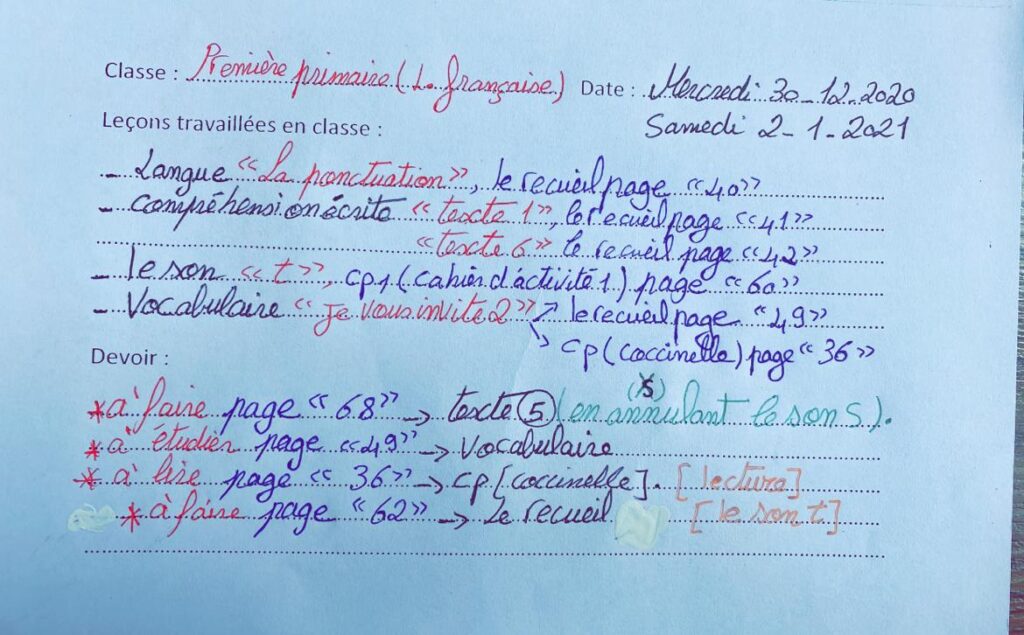 Classe : Première primaire (L. française) Date : Mercredi 30-12-2020
Samedi 2-1-2021
Leçons travaillées en classe :
- Langue « La ponctuation », le recueil page « 40 »
- compréhension écrite « texte 1 », le recueil page « 41 »
« texte 6 » le recueil page « 42 »
- le son « t », cp1 (cahier d'activité 1) page « 60 »
- Vocabulaire « je vous invite 2 » ↗ le recueil page « 49 »
↘ cp (coccinelle) page « 36 »
Devoir :
(S)
* à faire page « 68 » → texte 5 (en annulant le son S).
* à étudier page « 49 » → Vocabulaire
* à lire page « 36 » → cp [coccinelle]. [lecture]
* à faire page « 62 » → Le recueil [le son t]